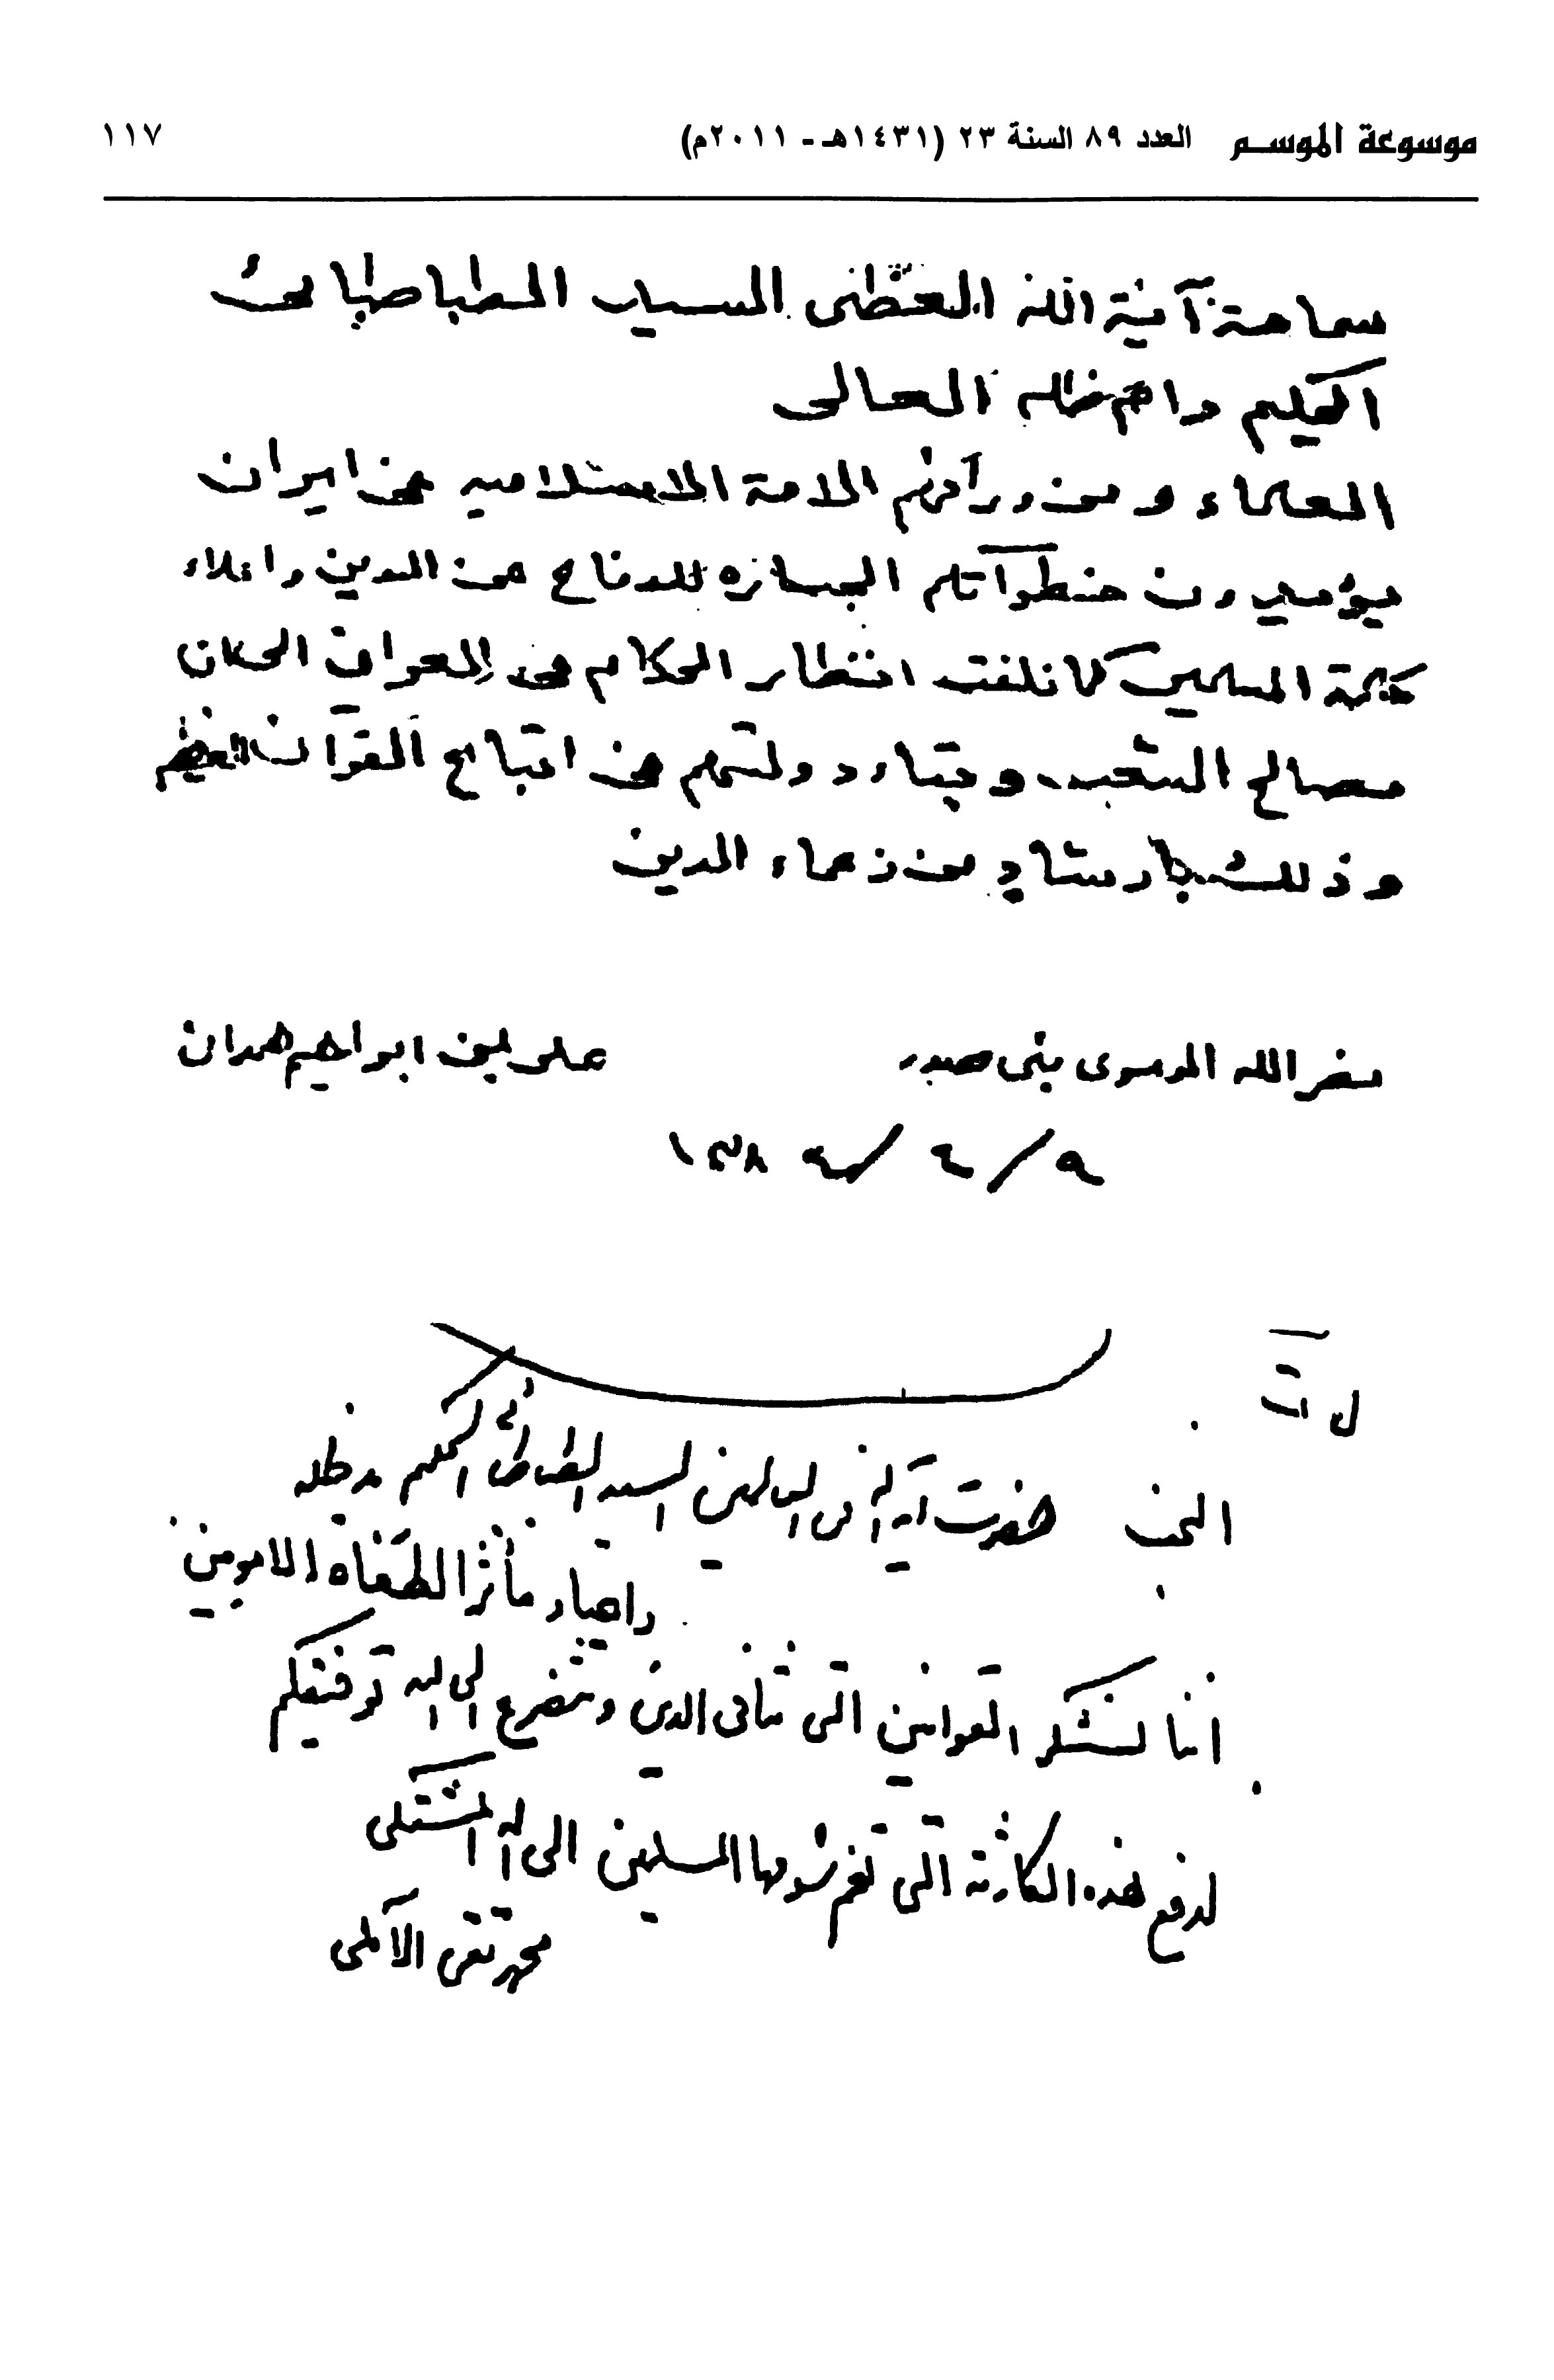 موسوعة الموسم العدد ٨٩ السنة ٢٣ (١٤٣١هـ - ٢٠١١م) ١١٧
سماحة آية الله العظمى السيد الطباطبائى
الحكيم دام ظله العالى
العلماء و من ورآئهم الامة الاسلاميه فى ايران
يؤيدون خطواتكم الجباره للدفاع عن الدين واعلاء
كلمة المسلمين كما نلفت انتظار الحكام فى العراق الى ان
مصالح الشعب و بقاء دولتهم فى اتباع القرآن العظيم
و ذلك بارشاد من زعماء الدين
نصر الله الموسوى بنى صدر
على بن ابراهيم همدان
٩ / ٤ / ١٣٨٠
النجف حضرت آية الله السيد الطباطبائى الحكيم مد ظله
الطغاة الامويين
اننا القوانين التى تنافى الدين و نتضرع الى الله توفيقكم
لدفع هذه الكارثة التى المسلمين الى الله المشتكى
محمد تقى الآملى